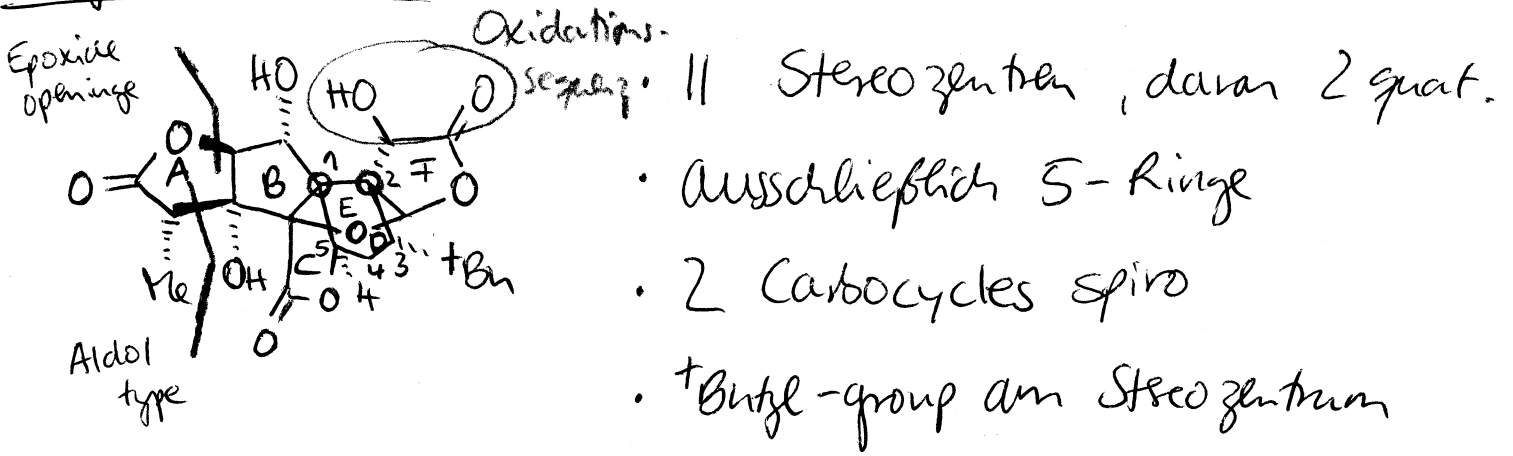 Oxidations-
sequenz
Epoxide
openinge
HO
HO
O
O
O
A
B
1
2
F
O
E
O
D
5
C
4
3
tBu
Me
OH
O
H
O
Aldol
type
• 11 Stereozentren, davan 2 quat.
• ausschließlich 5-Ringe
• 2 Carbocycles spiro
• tButyl-group am Stereozentrum